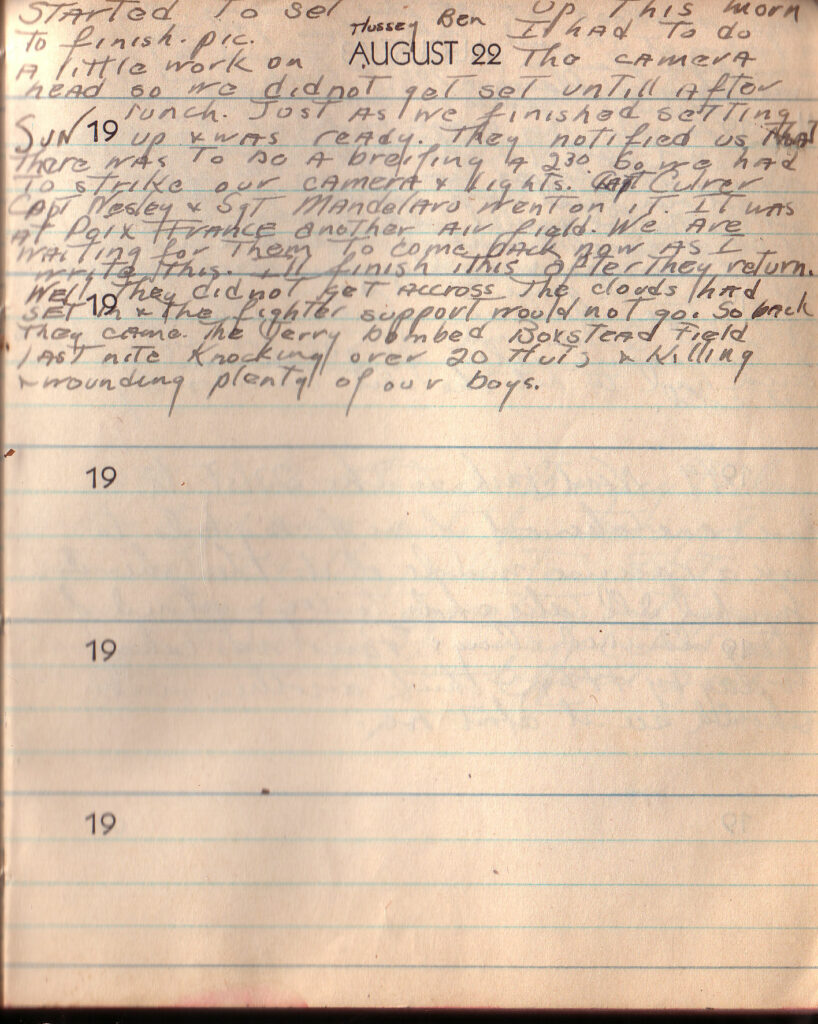 Started to set Hussey Ben up this morn
to finish. pic. I had to do
A little work on AUGUST 22 The camera
head so we did not get set untill After
lunch. Just As we finished setting
Sun 19 up & was ready. They notified us that
There was to be A breifing A 230 so we had
to strike our camera & lights. Capt Culver
Capt Nesley & Sgt Mandelaro went on it. It was
at Poix FRANCE another Air field. We Are
waiting for Them to come back now As I
write This. I'll finish this after they return.
Well they did not get Accross The clouds had
19
set in & the fighter support would not go. So back
they came. The Jerry bombed Boxstead Field
last nite Knocking over 20 Huts & Killing
& wounding plenty of our boys.
19
19
19